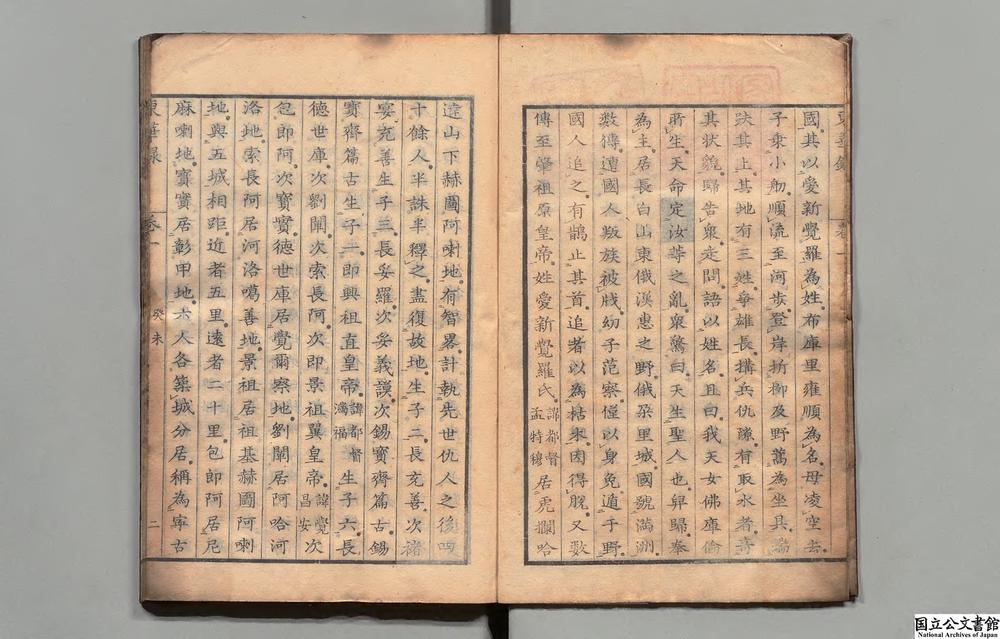 國其以愛新覺羅為姓布庫里雍順為名母凌空去
子乘小舠順流至河步登岸折柳及野蒿為坐具端
趺其上其地有三姓爭雄長搆兵仇隙有取水者奇
其狀貌歸告衆走問語以姓名且曰我天女佛庫倫
所生天命定汝等之亂衆驚曰天生聖人也舁歸奉
為主居長白山東俄漠惠之野俄朶里城國號滿洲
數傳遭國人叛族被戕幼子范察僅以身免遁于野
國人追之有鵲止其首追者以為枯木因得脫又數
傳至肇祖原皇帝姓愛新覺羅氏諱都督孟特穆居虎攔哈
達山下赫圖阿喇地有智畧計執先世仇人之後四
十餘人半誅半釋之盡復故地生子二長充善次褚
宴充善生子三長妥羅次妥義謨次錫寶齋篇古錫
寶齋篇古生子一即興祖直皇帝諱都督福滿生子六長
德世庫次劉闡次索長阿次即景祖翼皇帝諱覺昌安次
包即阿次寶實德世庫居覺爾察地劉闡居阿哈河
洛地索長阿居河洛噶善地景祖居祖基赫圖阿喇
地與五城相距近者五里遠者二十里包即阿居尼
麻喇地寶實居彰甲地六人各築城分居稱為寧古
東華錄 卷一 癸未 二
国立公文書館
National Archives of Japan